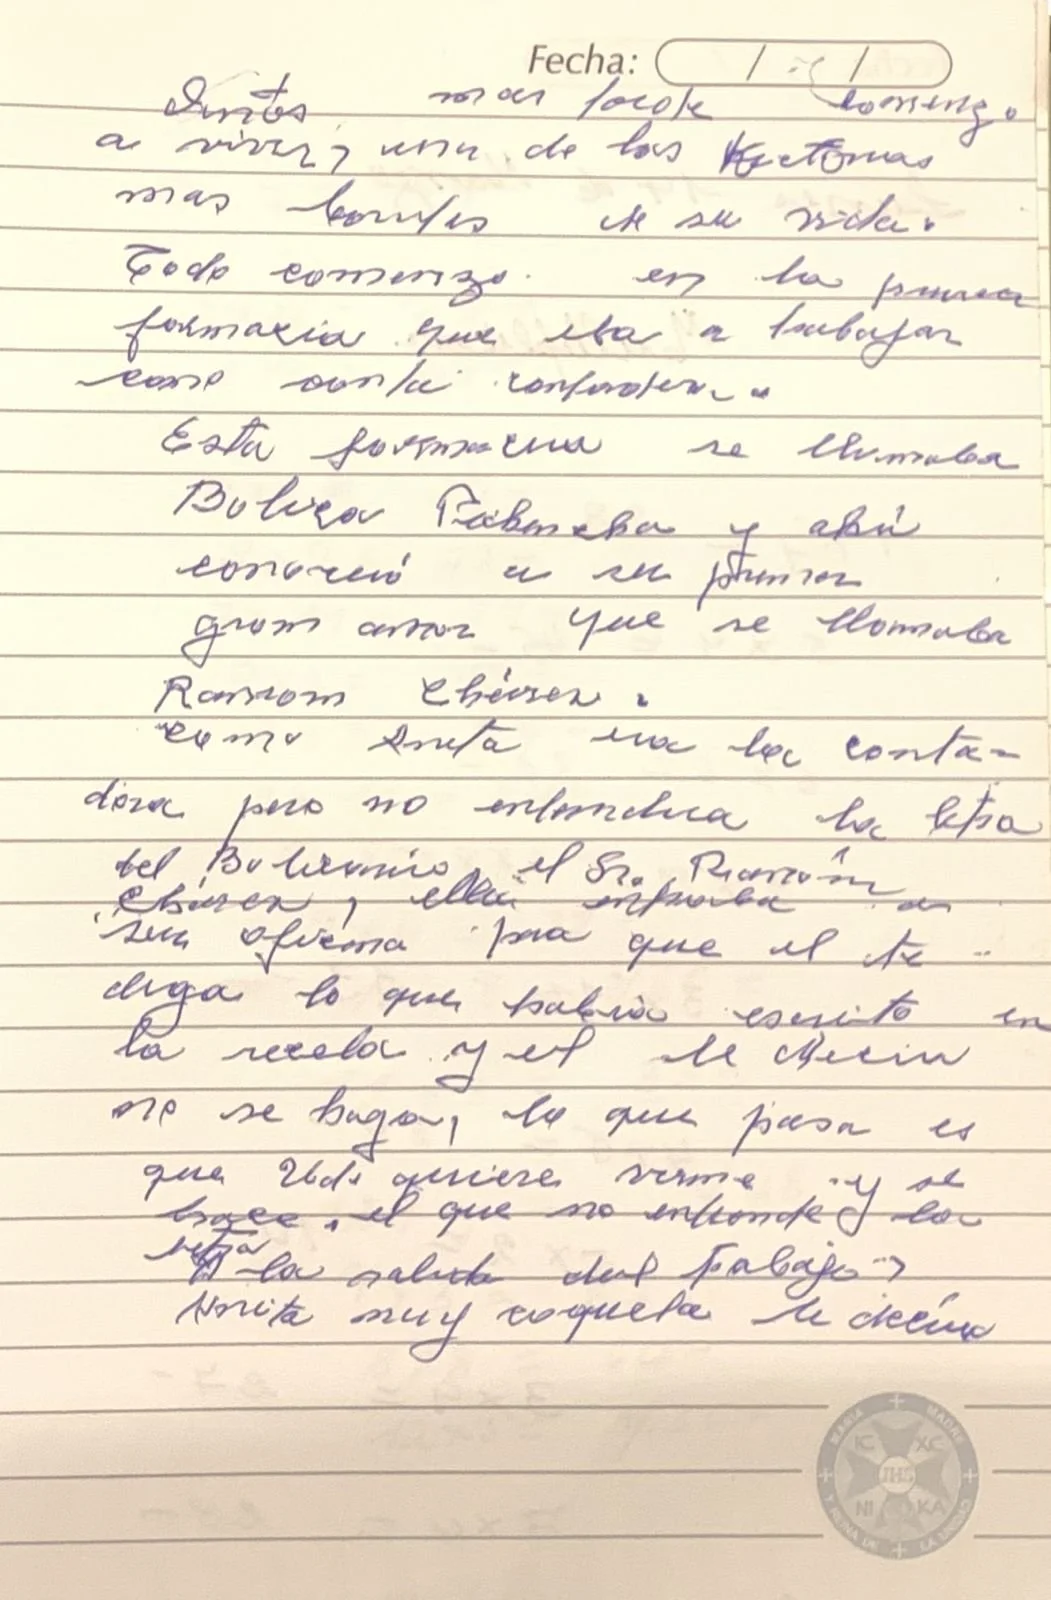 Fecha: / /
más tarde comenzo
a vivir, una de las historias
mas bonitas de su vida.
Todo comenzo en la primera
farmacia que iba a trabajar
como
Esta farmacia se llamaba
Botica y ahí
conoció a su primer
gran amor que se llamaba
Ramom Chávez.
como Anita era la conta-
dora pero no entendia la letra
del Boticario, el Sr. Ramón
Chávez, ella entraba a
su oficina para que el le
diga lo que habia escrito en
la receta y el le decia
no se haga, lo que pasa es
que Ud. quiere verme y se
hace, el que no entiende la
letra
A la salida del trabajo,
Anita muy coqueta le decía
MARIA MADRE
IC XC
JHS
NI KA
Y REINA DE LA UNIDAD